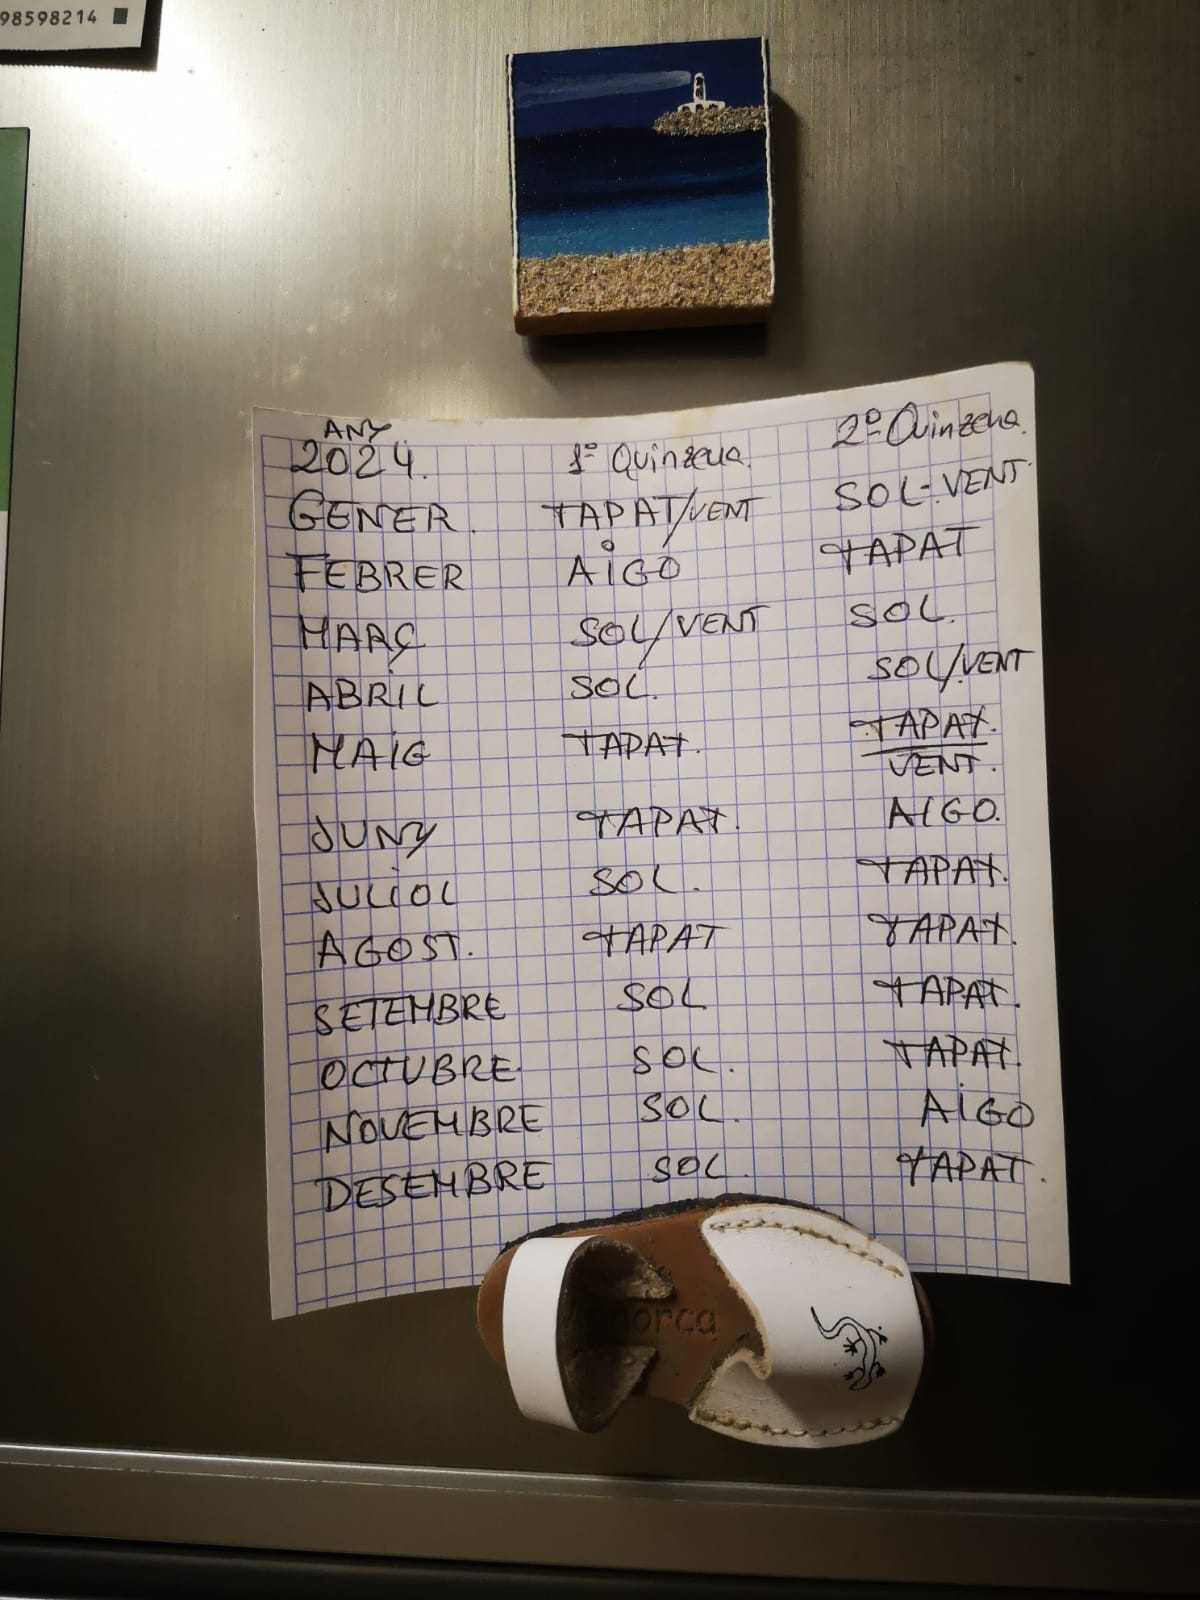 98598214
ANY
2024. 1ª Quinzena. 2ª Quinzena.
GENER. TAPAT/VENT SOL-VENT.
FEBRER AIGO TAPAT
MARÇ SOL/VENT SOL.
ABRIL SOL. SOL/VENT
MAIG TAPAT. TAPAT.
VENT.
JUNY TAPAT. AIGO.
JULIOL SOL. TAPAT.
AGOST. TAPAT TAPAT.
SETEMBRE SOL TAPAT.
OCTUBRE. SOL. TAPAT.
NOVEMBRE SOL. AIGO
DESEMBRE SOL. TAPAT.